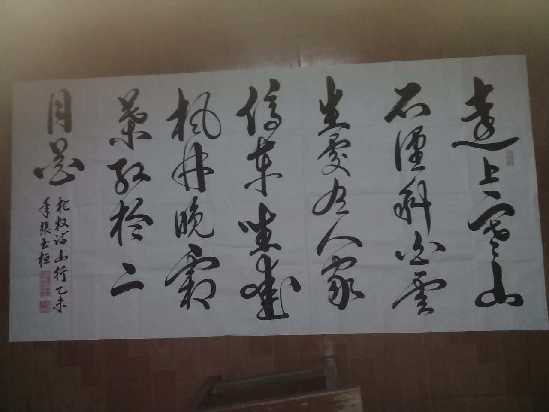 遠上寒山
石徑斜白雲
生處有人家
停車坐愛
楓林晚霜
葉紅於二
月花
杜牧詩山行乙未
年張玉